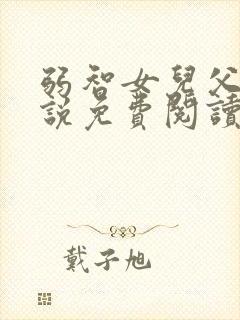 弱智女兒父
說免費閱讀
戴子旭